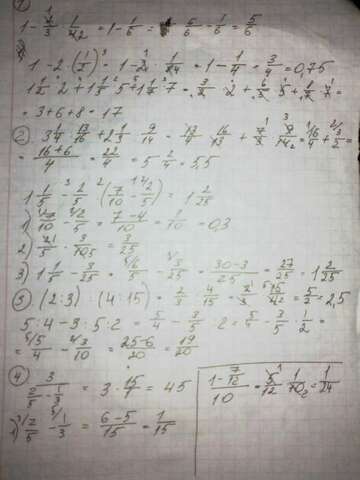 1
1 - 1/3 · 1/2 = 1 - 1/6 = 6/6 - 1/6 = 5/6
1 - 2 · (1/2)³ = 1 - 2 · 1/8 = 1 - 1/4 = 3/4 = 0,75
1 1/2 · 2 + 1 1/5 · 5 + 1 1/7 · 7 = 3/2 · 2 + 6/5 · 5 + 8/7 · 7 =
= 3 + 6 + 8 = 17
2 3 1/4 · 16/13 + 2 1/3 · 9/14 = 13/4 · 16/13 + 7/3 · 9/14 = 16/4 + 3/2 =
= 16+6/4 = 22/4 = 5 2/4 = 5,5
1 1/5 - 2/5 (7/10 - 2/5) = 1 2/25
1) 7/10 - 2/5 = 7-4/10 = 3/10 = 0,3
2) 2/5 · 3/10 = 3/25
3) 1 1/5 - 3/25 = 6/5 - 3/25 = 30-3/25 = 27/25 = 1 2/25
3 (2:3) : (4:15) = 2/3 : 4/15 = 2/3 · 15/4 = 5/2 = 2,5
5 : 4 - 3 : 5 · 2 = 5/4 - 3/5 · 2 = 5/4 - 3/5 · 1/2 =
= 5/4 - 3/10 = 25-6/20 = 19/20
4 3 / 2/5 - 1/3 = 3 · 15/1 = 45
1) 2/5 - 1/3 = 6-5/15 = 1/15
1 - 7/12 / 10 = 5/12 · 1/10 = 1/24